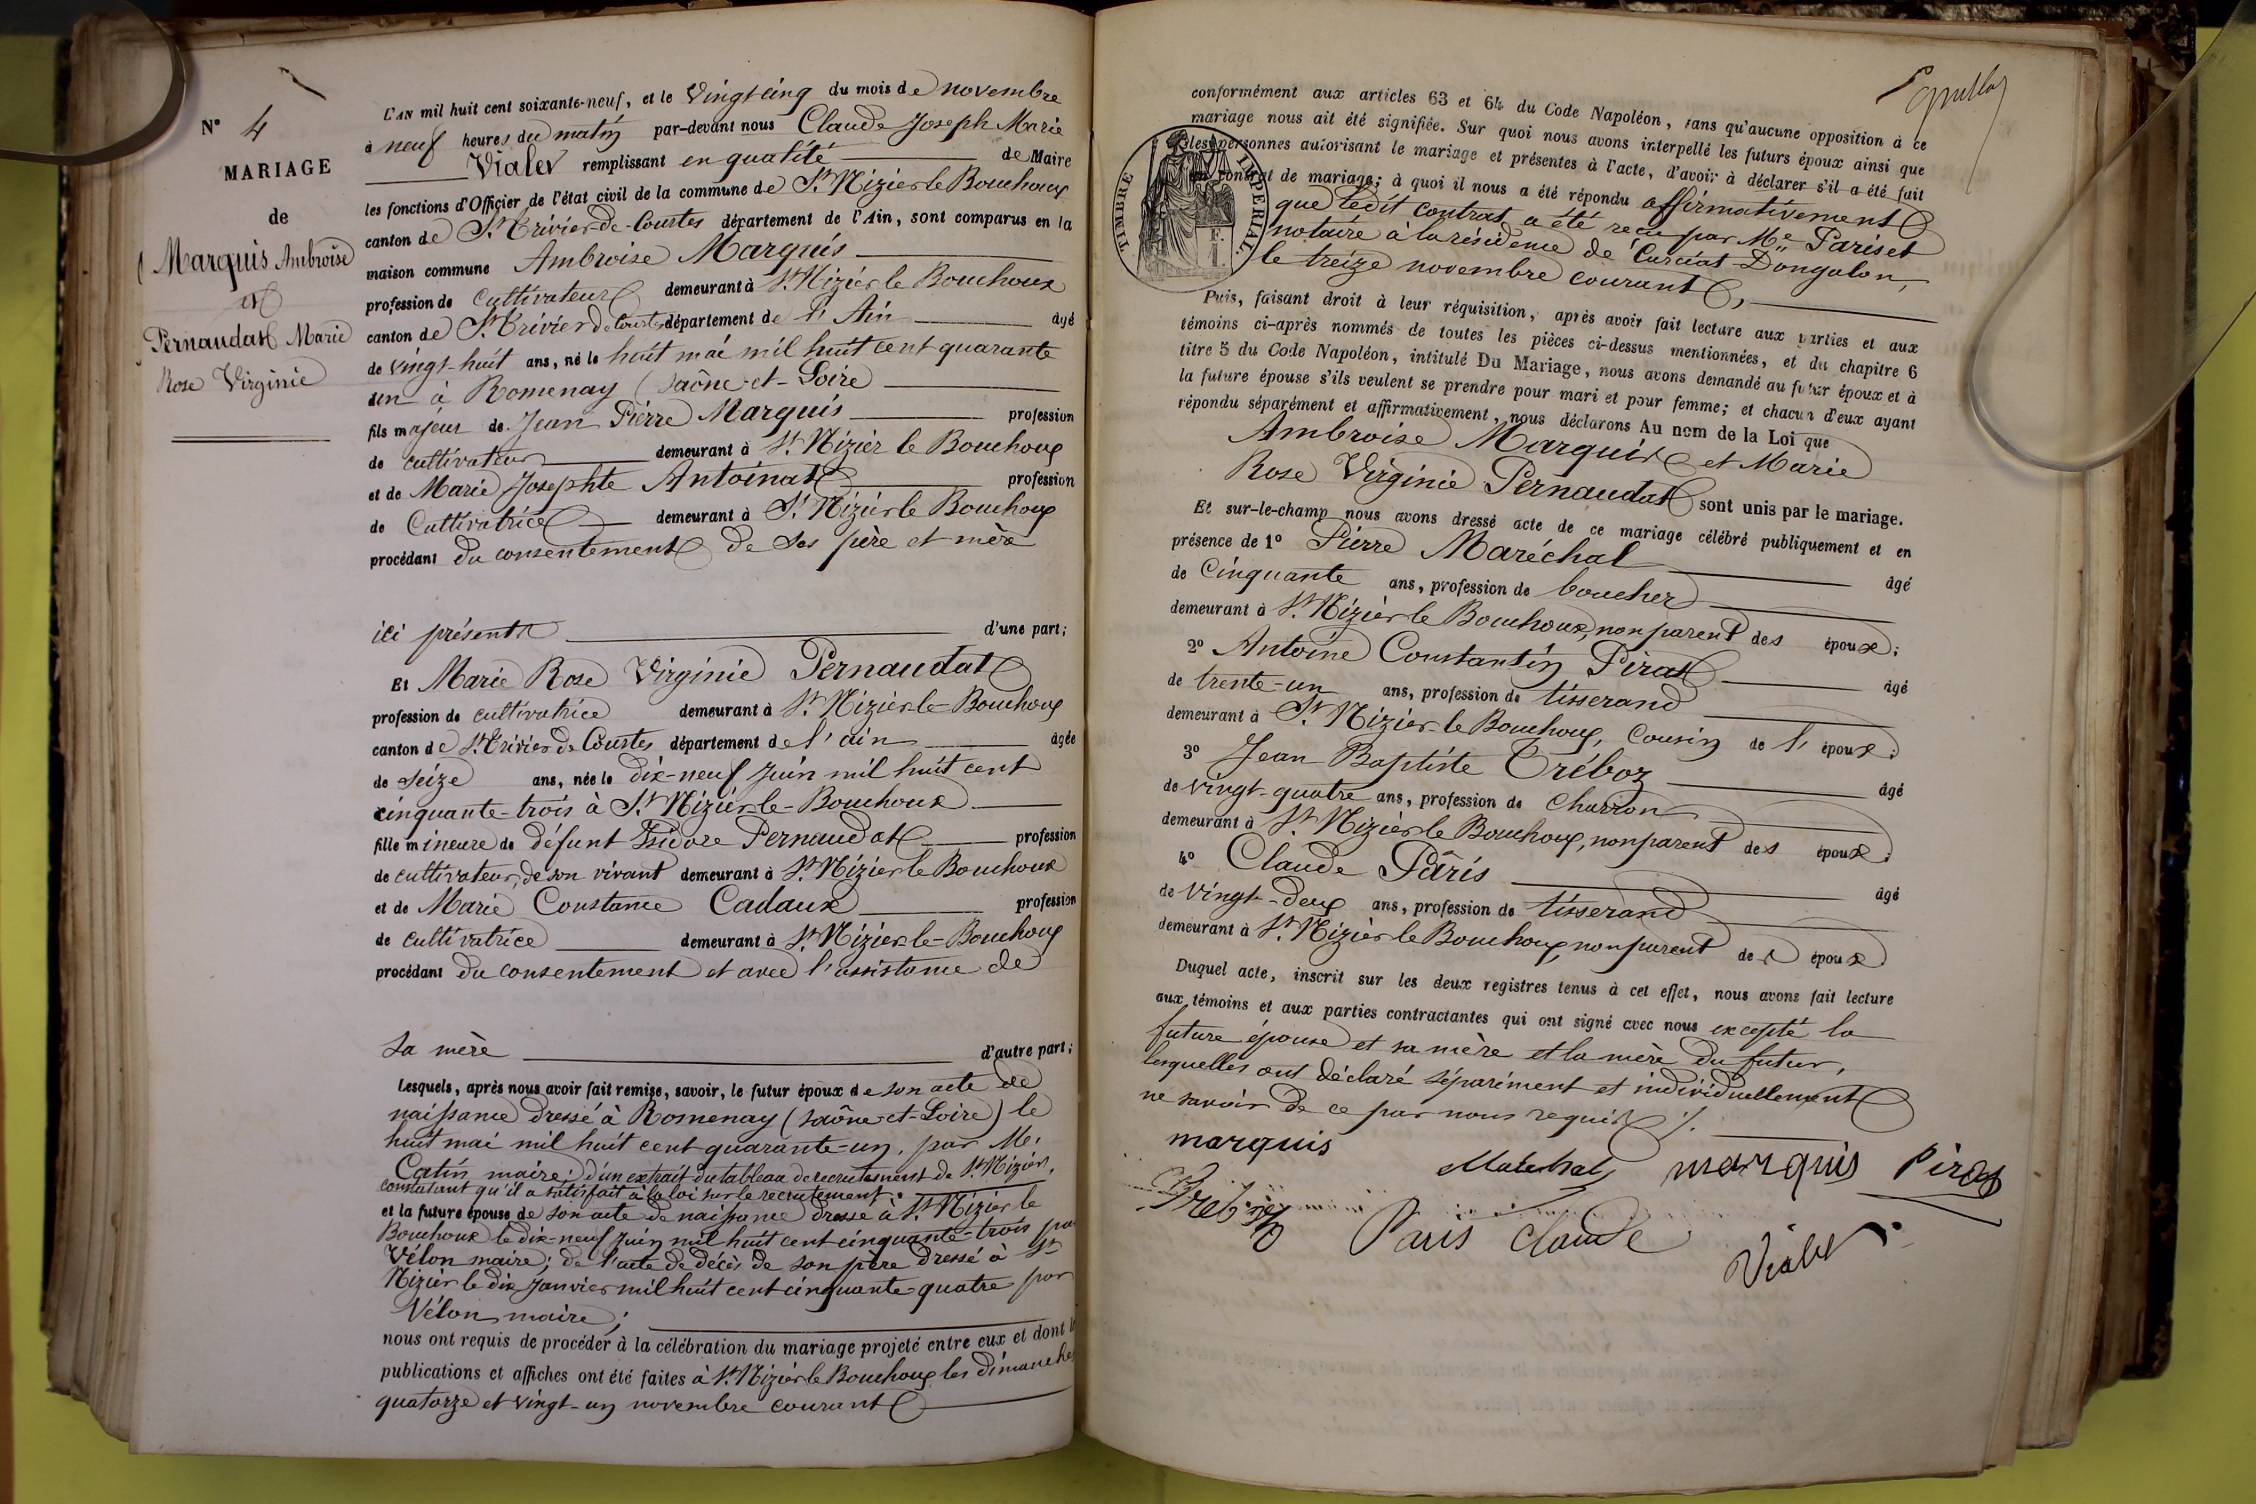 N° 4
MARIAGE
de
Marquis Ambroise
et
Pernaudat Marie
Rose Virginie
L'AN mil huit cent soixante-neuf, et le Vingt cinq du mois de novembre
à neuf heures du matin par-devant nous Claude Joseph Marie
Vialet remplissant en qualité de Maire
les fonctions d'Officier de l'état civil de la commune de St Nizier le Bouchoux
canton de St Trivier-de-Courtes département de l'Ain, sont comparus en la
maison commune Ambroise Marquis
profession de cultivateur demeurant à St Nizier le Bouchoux
canton de St Trivier de Courtes département de l'Ain âgé
de vingt-huit ans, né le huit mai mil huit cent quarante
un à Romenay (Saône-et-Loire
fils majeur de Jean Pierre Marquis profession
de cultivateur demeurant à St Nizier le Bouchoux
et de Marie Josephte Antoinat profession
de Cultivatrice demeurant à St Nizier le Bouchoux
procédant du consentement de ses père et mère
ici présents d'une part;
Et Marie Rose Virginie Pernaudat
profession de cultivatrice demeurant à St Nizier-le-Bouchoux
canton de St Trivier de Courtes département de l'ain âgée
de seize ans, née le dix-neuf juin mil huit cent
cinquante-trois à St Nizier-le-Bouchoux
fille mineure de défunt Isidore Pernaudat profession
de cultivateur, de son vivant demeurant à St Nizier le Bouchoux
et de Marie Constance Cadaux profession
de cultivatrice demeurant à St Nizier-le-Bouchoux
procédant du consentement et avec l'assistance de
sa mère d'autre part;
Lesquels, après nous avoir fait remise, savoir, le futur époux de son acte de
naissance dressé à Romenay (Saône-et-Loire) le
huit mai mil huit cent quarante-un, par Mr
Catin maire; d'un extrait du tableau de recrutement de St Nizier,
constatant qu'il a satisfait à la loi sur le recrutement.
et la future épouse de son acte de naissance dressé à St Nizier le
Bouchoux le dix-neuf juin mil huit cent cinquante-trois par
Vélon maire; de l'acte de décès de son père dressé à St
Nizier le dix janvier mil huit cent cinquante quatre par
Vélon maire;
nous ont requis de procéder à la célébration du mariage projeté entre eux et dont
publications et affiches ont été faites à St Nizier le Bouchoux les dimanches
quatorze et vingt-un novembre courant
conformément aux articles 63 et 64 du Code Napoléon, sans qu'aucune opposition à ce
mariage nous ait été signifiée. Sur quoi nous avons interpellé les futurs époux ainsi que
les personnes autorisant le mariage et présentes à l'acte, d'avoir à déclarer s'il a été fait
un contrat de mariage; à quoi il nous a été répondu affirmativement
que ledit contrat a été reçu par Me Pariset
notaire à la résidence de Curciat-Dongalon,
le treize novembre courant,
TIMBRE IMPERIAL.
Puis, faisant droit à leur réquisition, après avoir fait lecture aux parties et aux
témoins ci-après nommés de toutes les pièces ci-dessus mentionnées, et du chapitre 6
titre 5 du Code Napoléon, intitulé Du Mariage, nous avons demandé au futur époux et à
la future épouse s'ils veulent se prendre pour mari et pour femme; et chacun d'eux ayant
répondu séparément et affirmativement, nous déclarons Au nom de la Loi que
Ambroise Marquis et Marie
Rose Virginie Pernaudat sont unis par le mariage.
Et sur-le-champ nous avons dressé acte de ce mariage célébré publiquement et en
présence de 1° Pierre Maréchal âgé
de Cinquante ans, profession de boucher
demeurant à St Nizier le Bouchoux, non parent des époux;
2° Antoine Constantin Pirat âgé
de trente-un ans, profession de tisserand
demeurant à St Nizier-le-Bouchoux, Cousin de l'époux;
3° Jean Baptiste Tréboz âgé
de vingt-quatre ans, profession de Charron
demeurant à St Nizier le Bouchoux, non parent des époux;
4° Claude Pâris âgé
de vingt-deux ans, profession de tisserand
demeurant à St Nizier le Bouchoux, non parent des époux
Duquel acte, inscrit sur les deux registres tenus à cet effet, nous avons fait lecture
aux témoins et aux parties contractantes qui ont signé avec nous excepté la
future épouse et sa mère et la mère du futur,
lesquelles ont déclaré séparément et individuellement
ne savoir de ce par nous requis ./.
marquis Maréchal marquis Pirat
Treboz Paris Claude Vialet